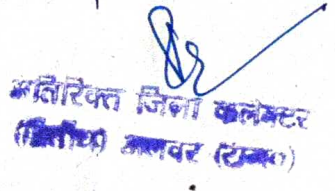 अतिरिक्त जिला कलेक्टर
(द्वितीय) अलवर (राज०)